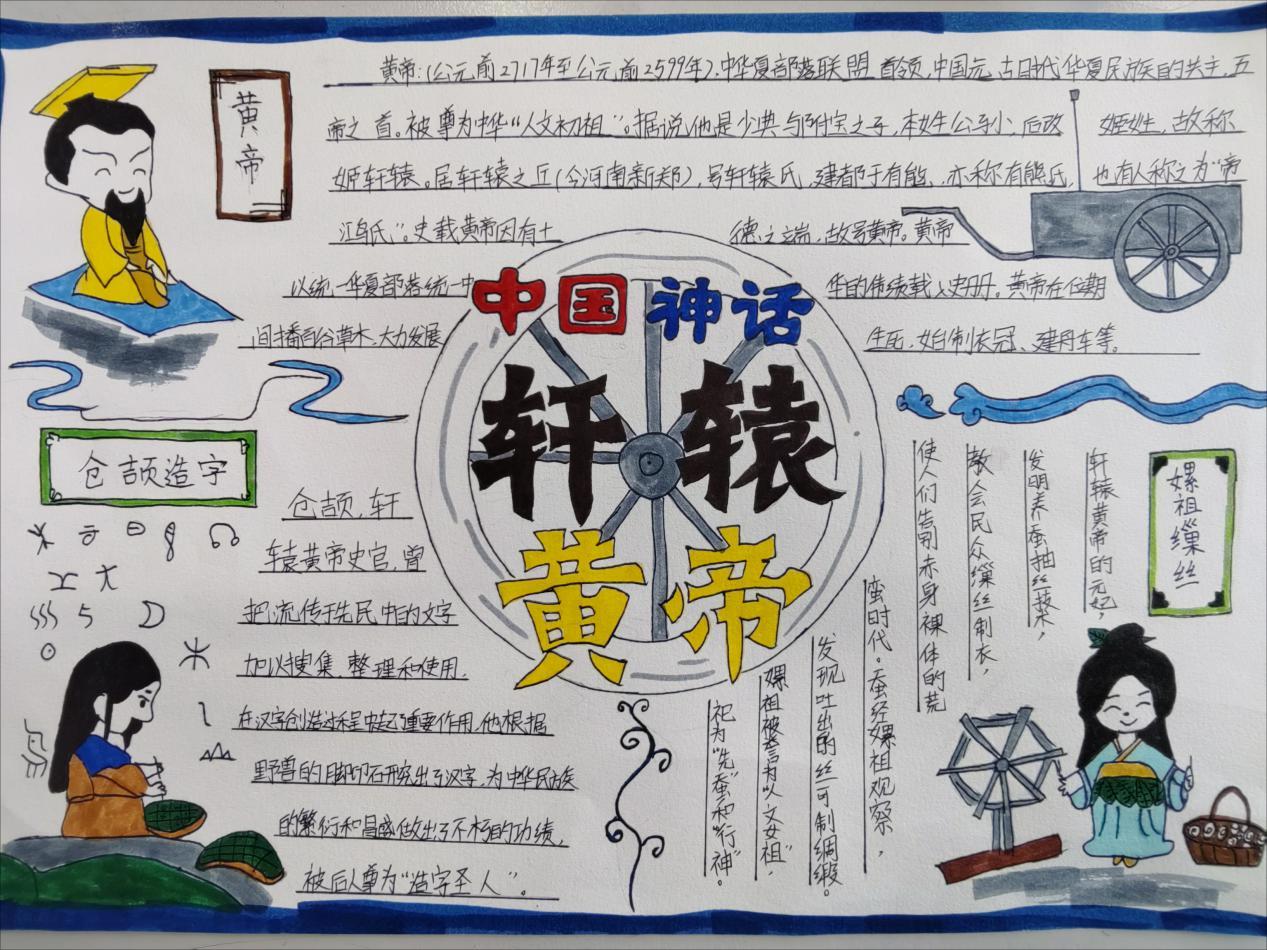 黄帝
黄帝:(公元前2717年至公元前2599年),中华夏部落联盟首领,中国远古时代华夏民族的共主,五
帝之首。被尊为中华“人文初祖”。据说他是少典与附宝之子,本姓公孙,后改姬姓,故称
姬轩辕。居轩辕之丘(今河南新郑),号轩辕氏,建都于有熊,亦称有熊氏,也有人称之为“帝
鸿氏”。史载黄帝因有土德之瑞,故号黄帝。黄帝
以统一华夏部落统一中华的伟绩载入史册。黄帝在位期
间播百谷草木,大力发展生死,始制衣冠、建舟车等。
中国神话
轩辕
黄帝
仓颉造字
仓颉,轩
辕黄帝史官,曾
把流传于先民中的文字
加以搜集,整理和使用,
在汉字创造过程中起了重要作用,他根据
野兽的脚印研究出了汉字,为中华民族
的繁衍和昌盛做出了不朽的功绩,
被后人尊为“造字圣人”。
嫘祖缫丝
轩辕黄帝的元妃,
发明养蚕抽丝技术,
教会民众缫丝制衣,
使人们告别赤身裸体的荒
蛮时代。蚕经嫘祖观察,
发现吐出的丝可制绸缎。
嫘祖被誉为“人文女祖”
祀为“先蚕”和“行神”。